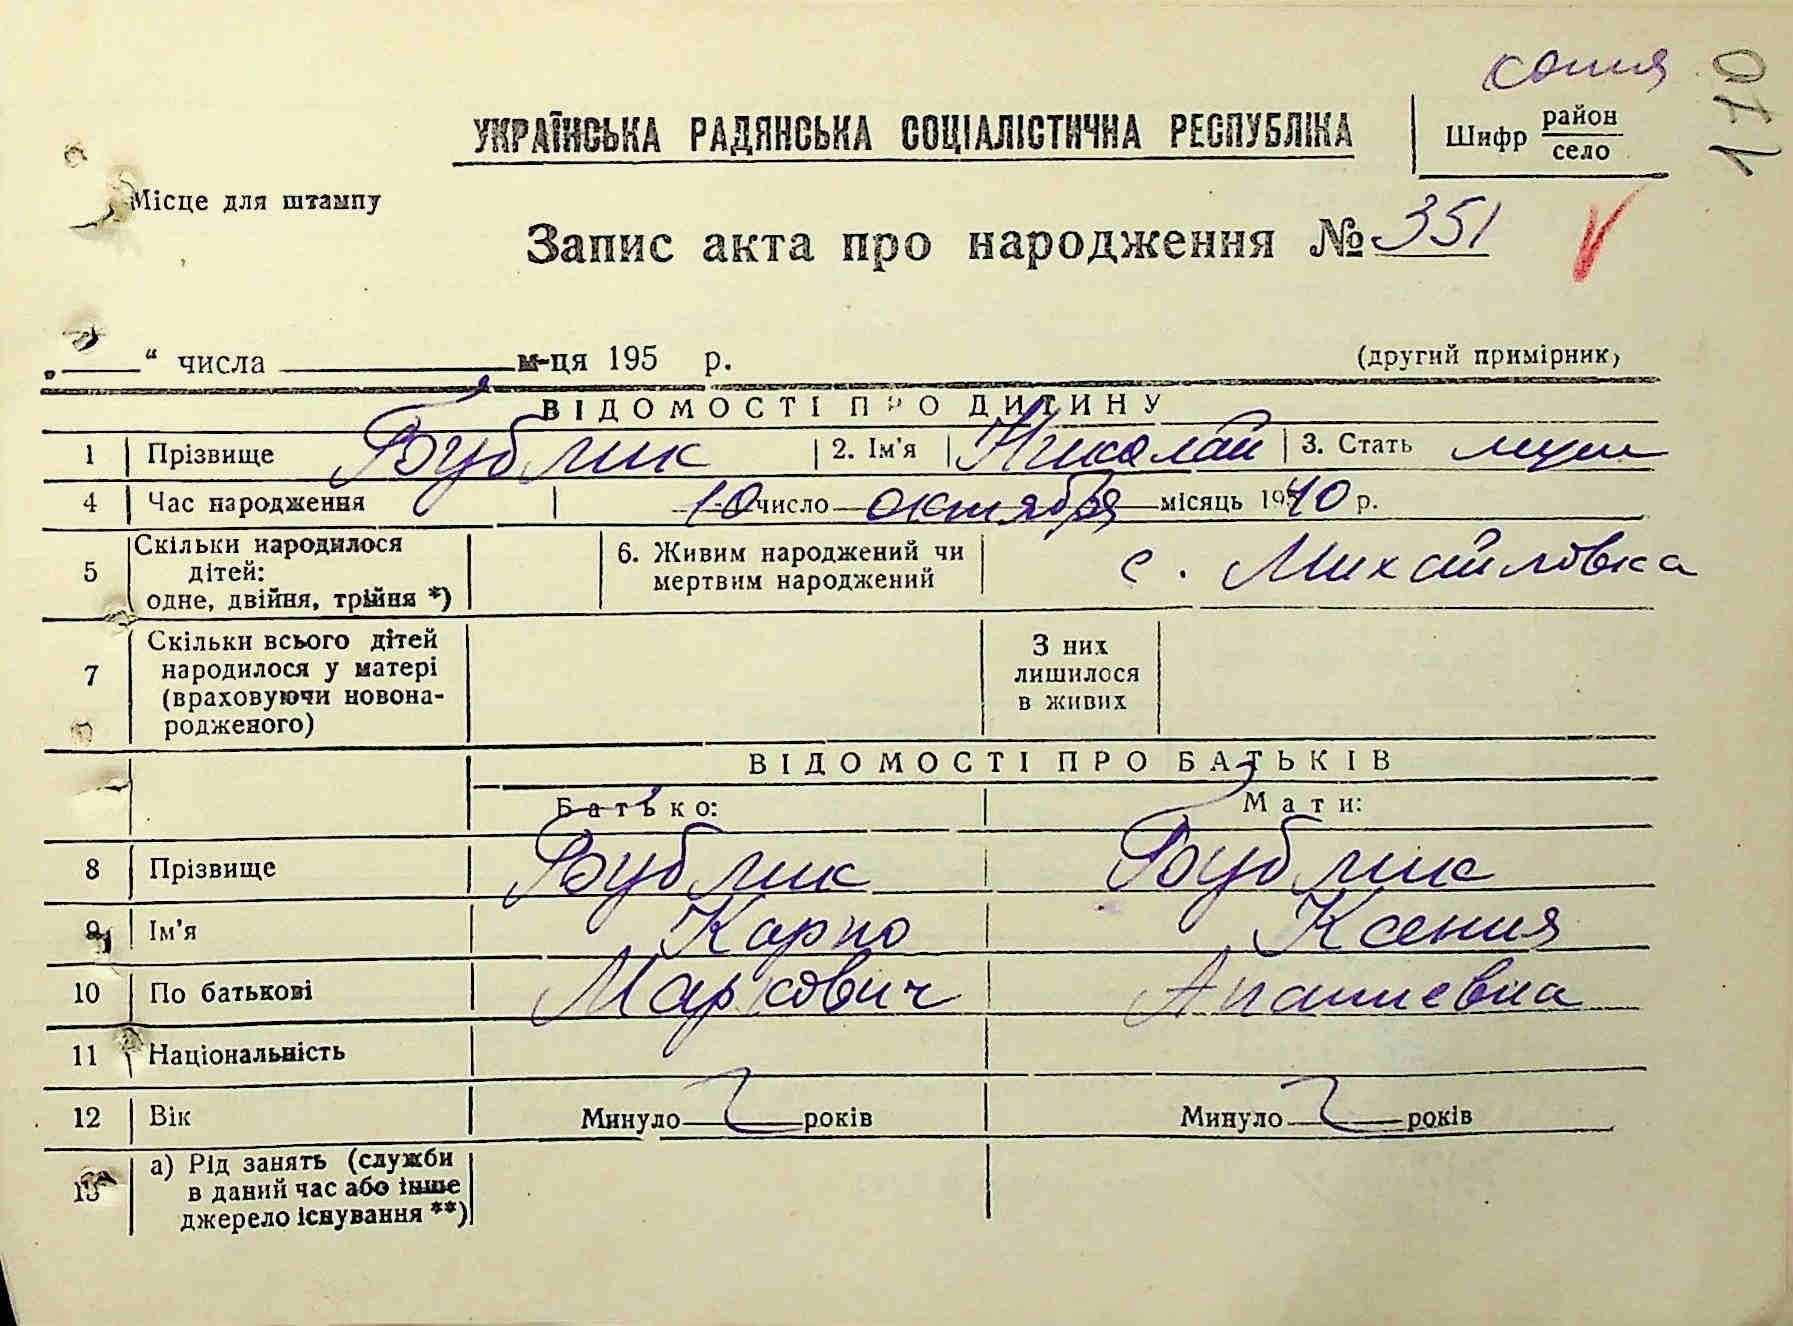 копия
170
УКРАЇНСЬКА РАДЯНСЬКА СОЦІАЛІСТИЧНА РЕСПУБЛІКА
Шифр район
село
Місце для штампу
Запис акта про народження № 351
„ “ числа м-ця 195 р. (другий примірник)
ВІДОМОСТІ ПРО ДИТИНУ
1 Прізвище Бублик 2. Ім'я Николай 3. Стать муж
4 Час народження 10 число октября місяць 1940 р.
5 Скільки народилося дітей: одне, двійня, трійня *) 6. Живим народжений чи мертвим народжений с. Михайловка
7 Скільки всього дітей народилося у матері (враховуючи новона-родженого) З них лишилося в живих
ВІДОМОСТІ ПРО БАТЬКІВ
Батько: Мати:
8 Прізвище Бублик Бублик
9 Ім'я Карпо Ксения
10 По батькові Маркович
11 Національність
12 Вік Минуло років Минуло років
13 а) Рід занять (служби в даний час або інше джерело існування **)